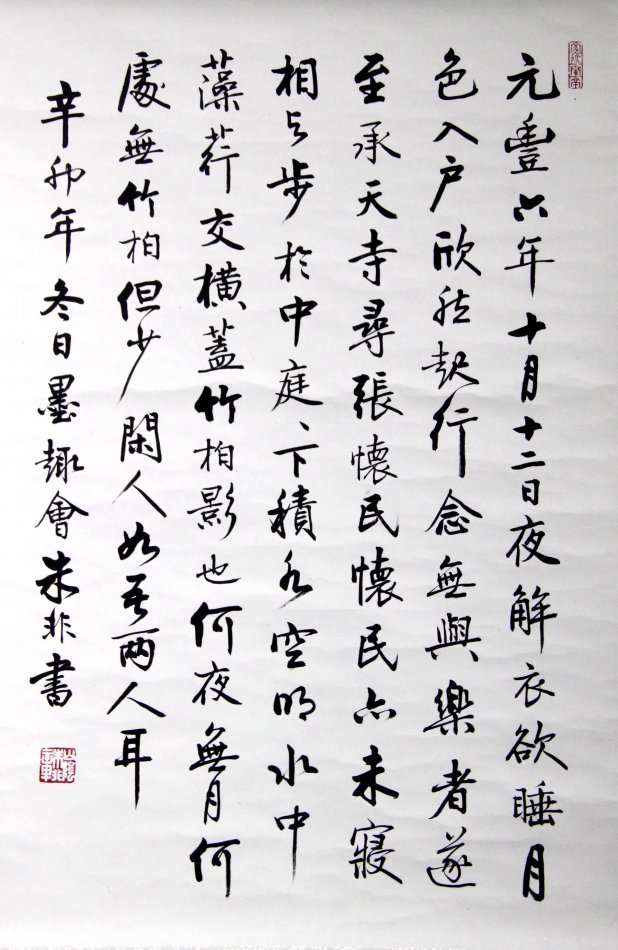 元豐六年十月十二日夜解衣欲睡月
色入户欣然起行念無與樂者遂
至承天寺尋張懷民懷民亦未寢
相与步於中庭、下積水空明水中
藻荇交橫蓋竹柏影也何夜無月何
處無竹柏但少閑人如吾兩人耳
辛卯年冬日墨趣會朱非書